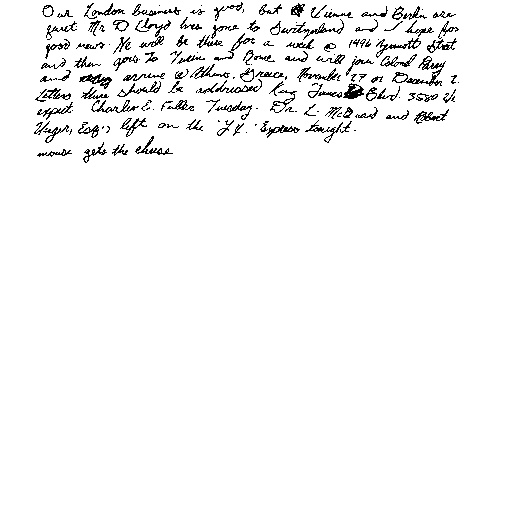 Our London business is good, but Vienna and Berlin are
quiet Mr D Lloyd has gone to Switzerland and I hope for
good news. He will be there for a week @ 1496 Zermott Street
and then goes to Turin and Rome and will join Colonel Parry
and arrive @ Athens, Greece, November 27 or December 2.
Letters there should be addressed King James Blvd. 3580 We
expect Charles E. Fuller Tuesday. Dr. L. McQuaid and Robert
Unger, Esq., left on the "Y.X." Express tonight.
mouse gets the cheese